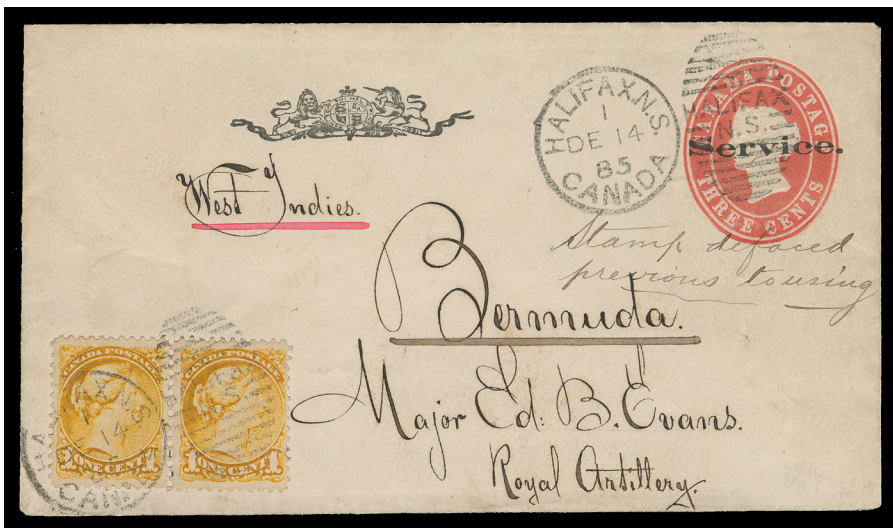 HALIFAX.N.S.
1
DE 14
85
CANADA
HALIFAX
N.S.
CANADA POSTAGE
THREE CENTS
Service.
West Indies.
Stamp defaced
previous to using
Bermuda.
Major Ed: B. Evans.
Royal Artillery.
CANADA POSTAGE
1 ONE CENT 1
CANADA POSTAGE
1 ONE CENT 1
14